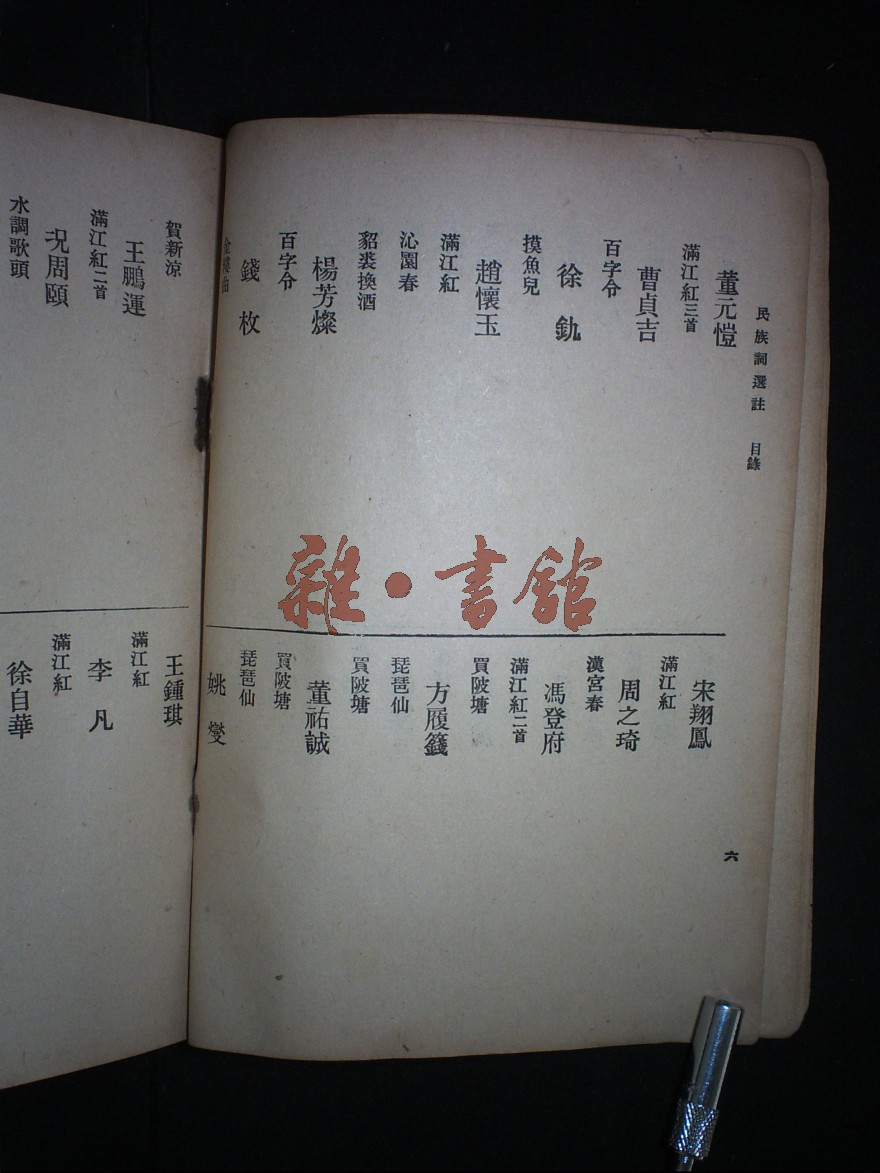 民族詞選註　目錄
董元愷
滿江紅三首
曹貞吉
百字令
徐釚
摸魚兒
趙懷玉
滿江紅
沁園春
貂裘換酒
楊芳燦
百字令
錢枚
金縷曲
宋翔鳳
滿江紅
周之琦
漢宮春
馮登府
滿江紅二首
買陂塘
方履籛
琵琶仙
買陂塘
董祐誠
買陂塘
琵琶仙
姚燮
六
賀新涼
王鵬運
滿江紅二首
況周頤
水調歌頭
王鍾琪
滿江紅
李凡
滿江紅
徐自華
雜·書館